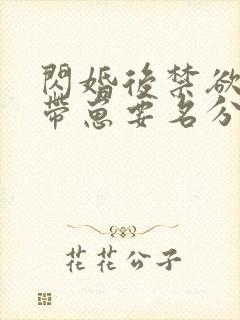 閃婚後禁欲
帶崽要名分
花花公子